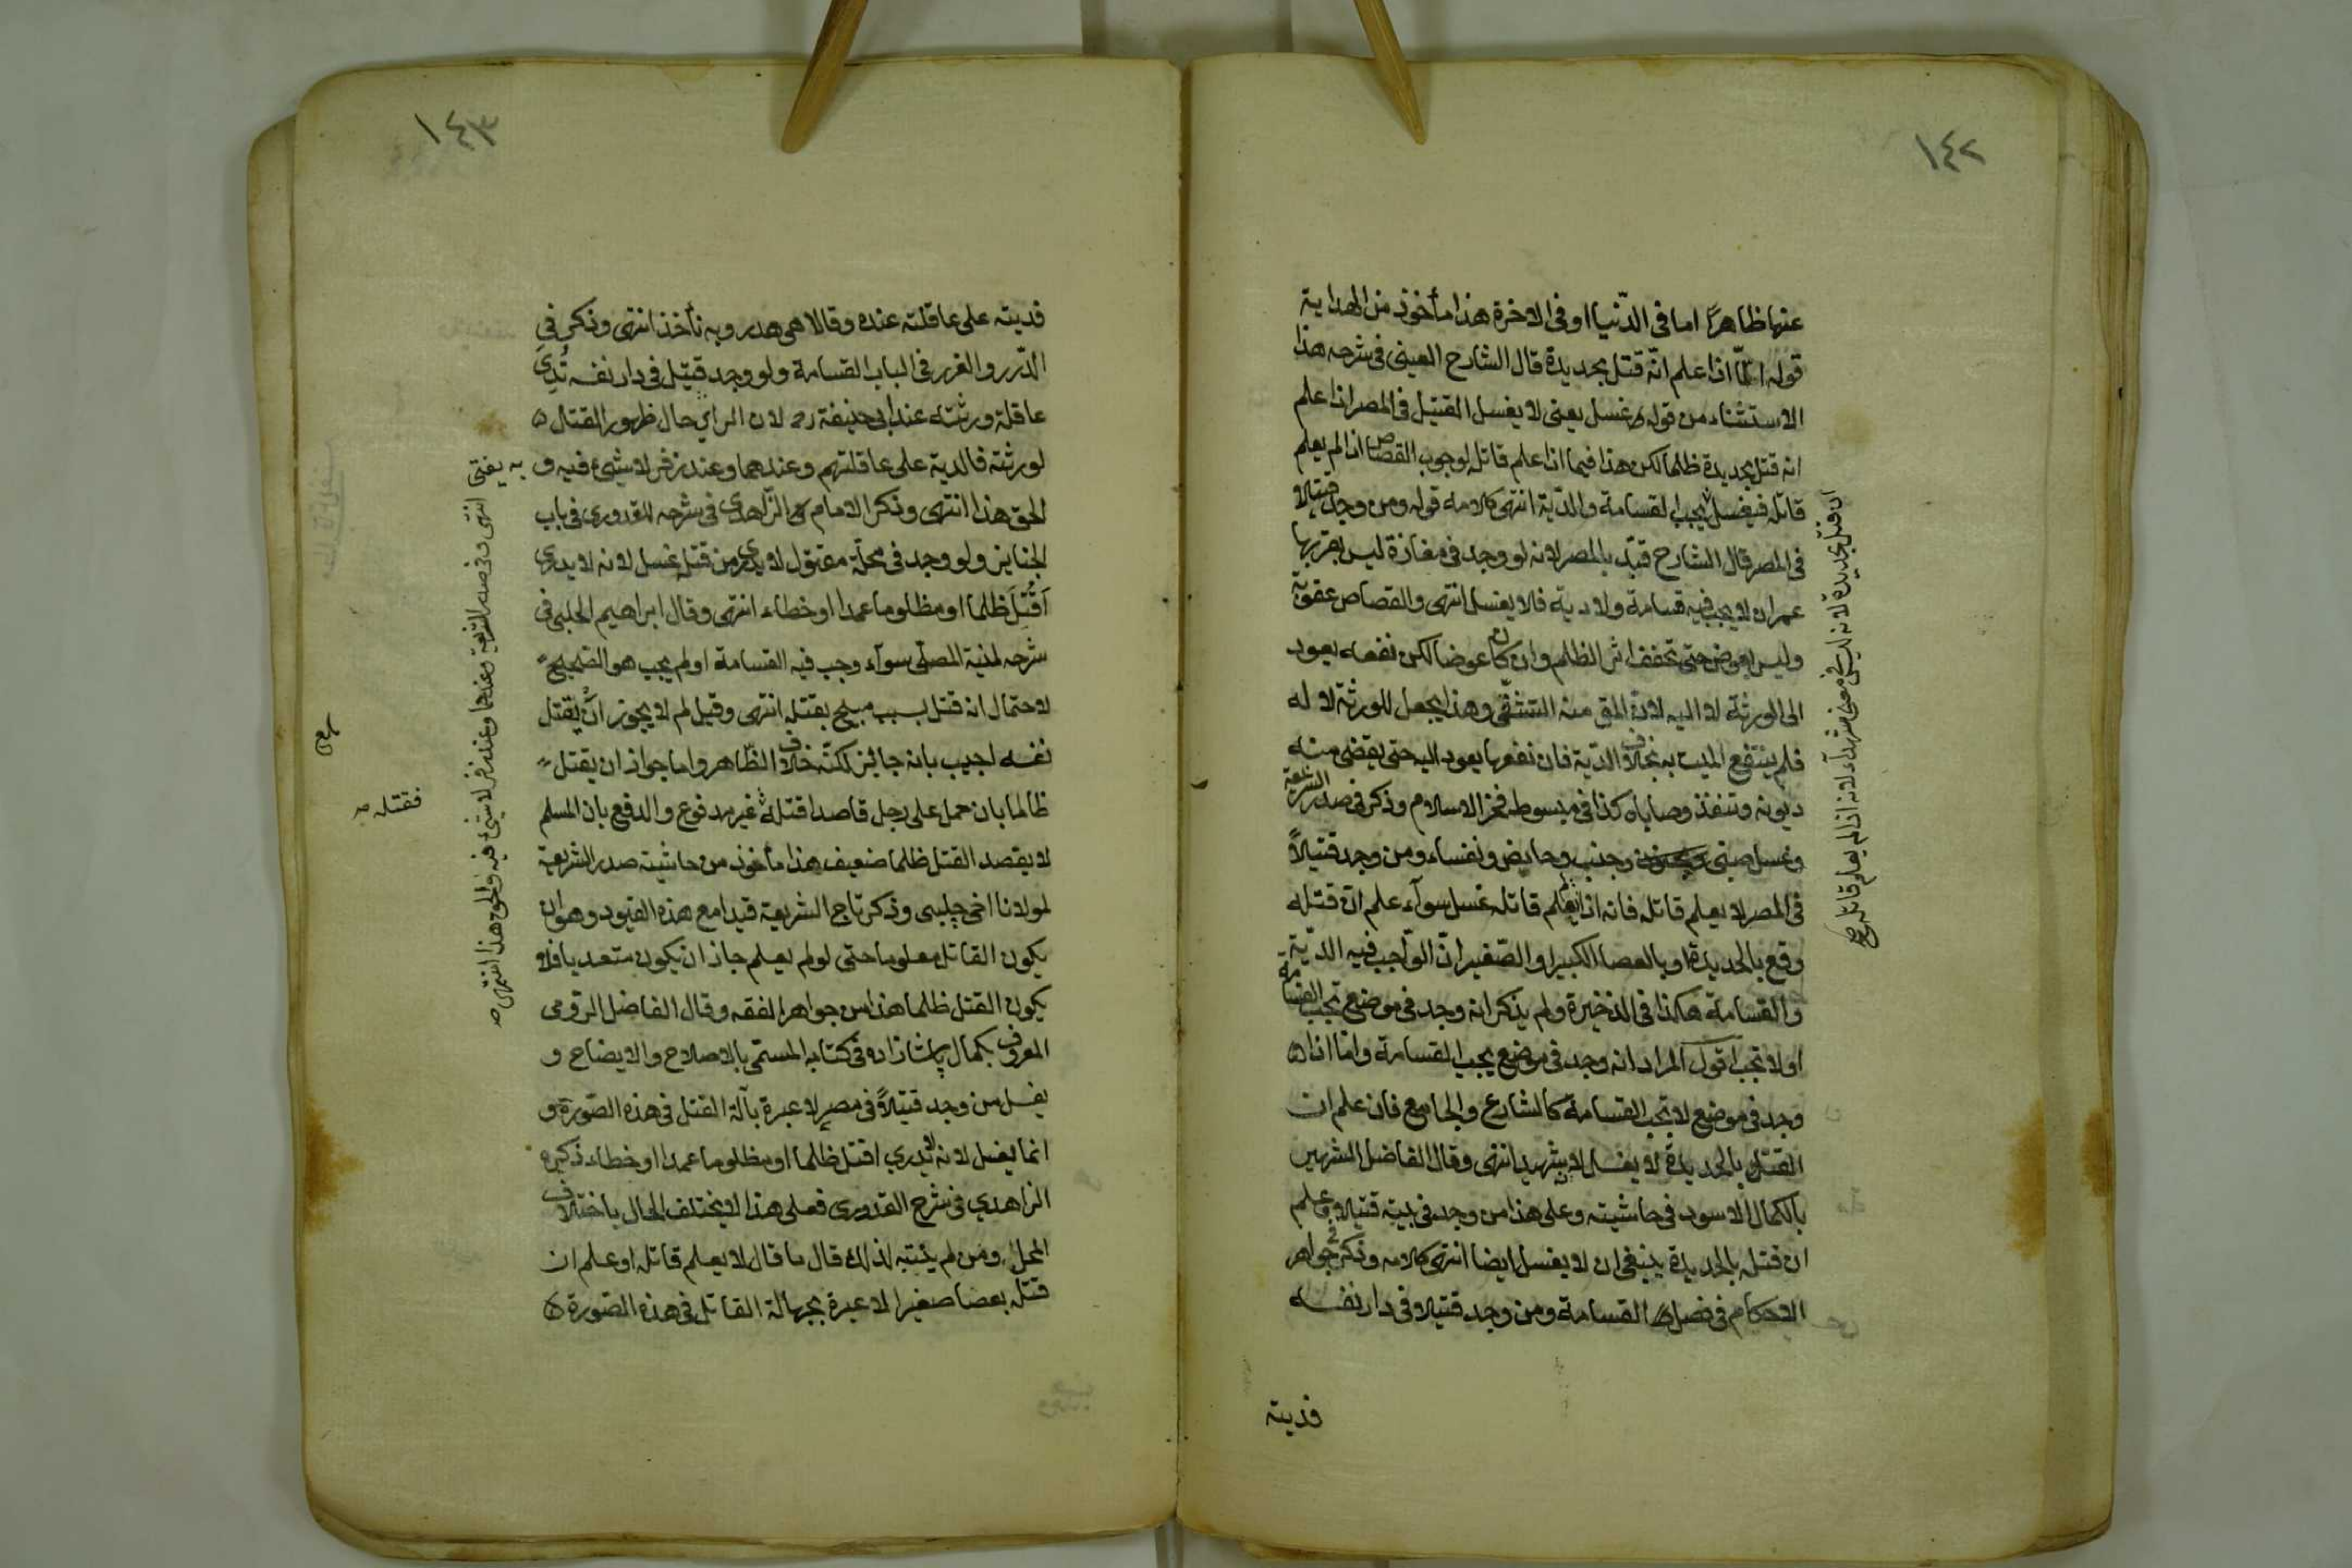 ١٤٢
عنها ظاهرًا اما فى الدّنيا او فى الاخرة هذا مأخوذ من الهداية
قوله الّا اذا علم انّه قتل بحديدة قال الشارح العينى فى شرحه هذا
الاستثناء من قوله غسل يعنى لا يغسل القتيل فى المصر اذا علم
انه قتل بحديدة ظلما لكن هذا فيما اذا علم قاتله لوجوب القصاص اذا لم يعلم
قاتله فيغسل يجب القسامة والدّية انتهى كلامه قوله ومن وجد قتيلا
فى المصر قال الشارح قيّد بالمصر لانه لو وجد فى مفازة ليس بقربها
عمران لا يجب فيه قسامة ولا دية فلا يغسل انتهى والقصاص عقوبة
وليس بعوض حتى تخفف اثر الظلم وان كان عوضا لكن نفعه يعود
الى الورثة لا اليه لانّ المق منه التشفّى وهذا يحصل للورثة لا له
فلم ينتفع الميت به بخلاف الدّية فان نفعها يعود اليه حتى يقضى منه
ديونه وتنفذ وصاياه كذا فى مبسوط فخر الاسلام وذكر فى صدر الشريعة
وغسل صبى وجنب وحايض ونفساء ومن وجد قتيلاً
فى المصر لا يعلم قاتله فانه اذا لم يعلم قاتله غسل سوآء علم ان قتله
وقع بالحديدة او بالعصا الكبير او الصّغير انّ الواجب فيه الدّية
والقسامة هكذا فى الذخيرة ولم يذكر انه وجد فى موضع تجب القسامة
او لا تجب اقول المراد انه وجد فى موضع يجب القسامة وامّا اذا
وجد فى موضع لا تجب القسامة كالشارع والجامع فان علم ان
القتل بالحديدة لا يغسل لانه شهيد انتهى وقال الفاضل الشهير
بالكمال الاسود فى حاشيته وعلى هذا من وجد فى بيته قتيلا وعلم
ان قتله بالحديدة ينبغى ان لا يغسل ايضا انتهى كلامه وذكر فى جواهر
الاحكام فى فصل القسامة ومن وجد قتيلا فى دار نفسه
فديته
ان قتل بحديدة لانه ليس فى معنى شهدآء لانه اذا لم يعلم قاتله
١٤٣
فديته على عاقلته عنده وقالا هى هدر وبه نأخذ انتهى وذكر فى
الدّرر والغرر فى الباب القسامة ولو وجد قتيل فى دار نفسه تُدِى
عاقلة ورثته عند ابى حنيفة رح لان الراي حال ظهور القتال
لورثته فالدية على عاقلتهم وعندهما وعند زفر لا شئ فيه و
الحق هذا انتهى وذكر الامام الزّاهدى فى شرحه للقدورى فى باب
الجنايز ولو وجد فى محلّة مقتول لا يدرى من قتله غسل لانه لا يدرى
اَقُتِلَ ظلما او مظلوما عمدا او خطاء انتهى وقال ابراهيم الحلبى فى
شرحه لمنية المصلّى سوآء وجب فيه القسامة او لم يجب هو الصّحيح
لاحتمال انه قتل بسبب مبيح بقتله انتهى وقيل لم لا يجوز ان يقتل
نفسه اجيب بانه جائز لكنّه خلاف الظّاهر واما جواز ان يقتل
ظالما بان حمل على رجل قاصدا قتله غير مدفوع والدفع بان المسلم
لا يقصد القتل ظلما ضعيف هذا مأخوذ من حاشية صدر الشريعة
لمولانا اخى چلبى وذكر تاج الشريعة قيدا مع هذه القيود وهو ان
يكون القاتل معلوما حتى لو لم يعلم جاز ان يكون متعديا فلا
يكون القتل ظلما هذا من جواهر الفقه وقال الفاضل الرّومى
المعروف بكمال پاشازاده فى كتابه المسمّى بالاصلاح والايضاح و
يغسل من وجد قتيلاً فى مصر لا عبرة بآلة القتل فى هذه الصّورة و
انما يغسل لانه لا يدري اقتل ظلما او مظلوما عمدا او خطاء ذكره
الزاهدي فى شرح القدورى فعلى هذا لا يختلف الحال باختلاف
المحل ومن لم يتنبّه لذلك قال ما قال لا يعلم قاتله او علم ان
قتله بعصا صغير لا عبرة بجهالة القاتل فى هذه الصّورة
به يفتى انتهى وفى صدر الشريعة وعندهما وعند زفر لا شئ فيه والحق هذا انتهى
فقتله